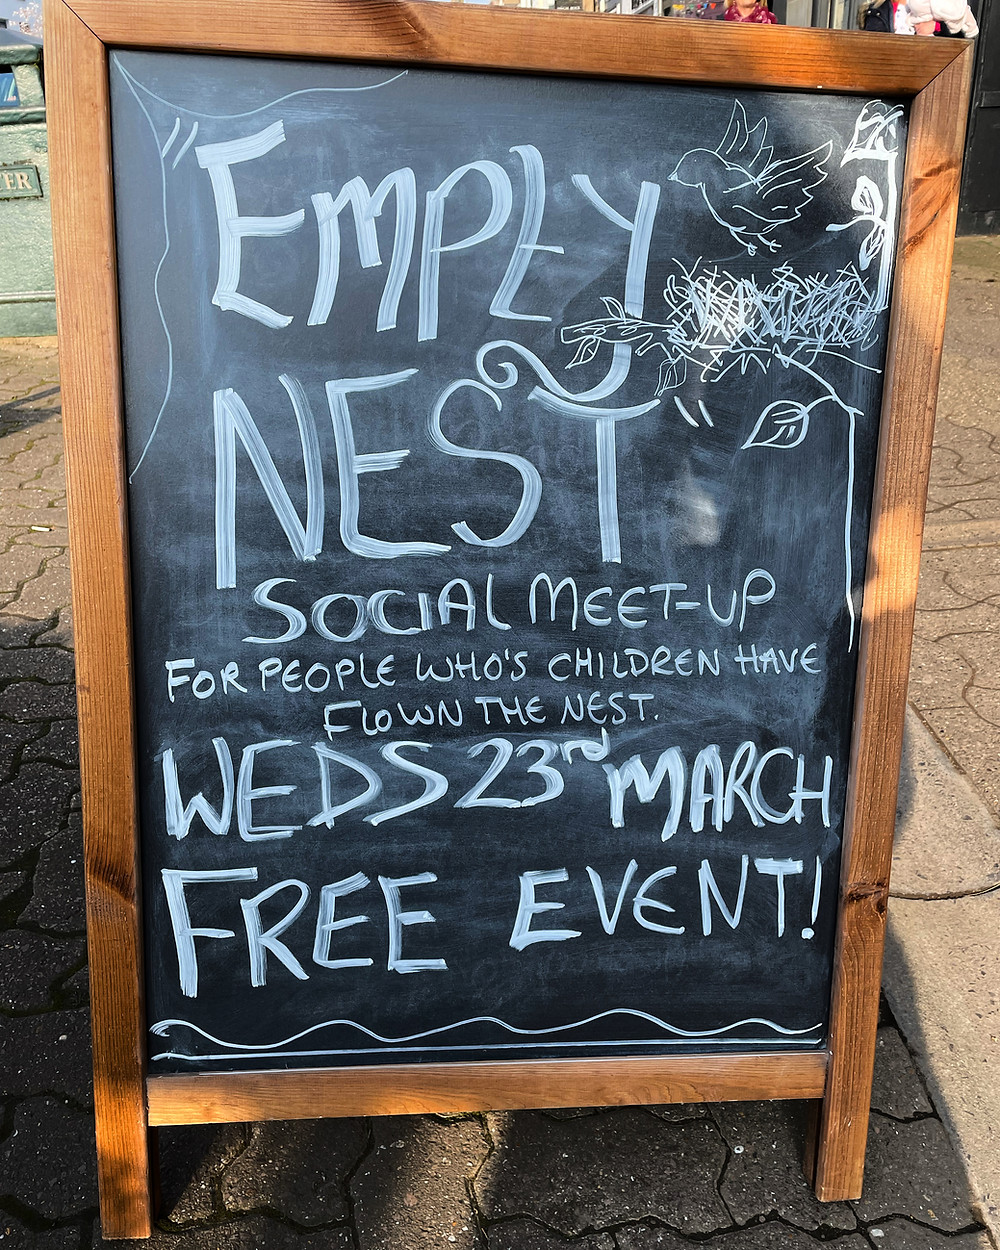 EMPTY
NEST
SOCIAL MEET-UP
FOR PEOPLE WHO'S CHILDREN HAVE
FLOWN THE NEST.
WEDS 23rd MARCH
FREE EVENT!